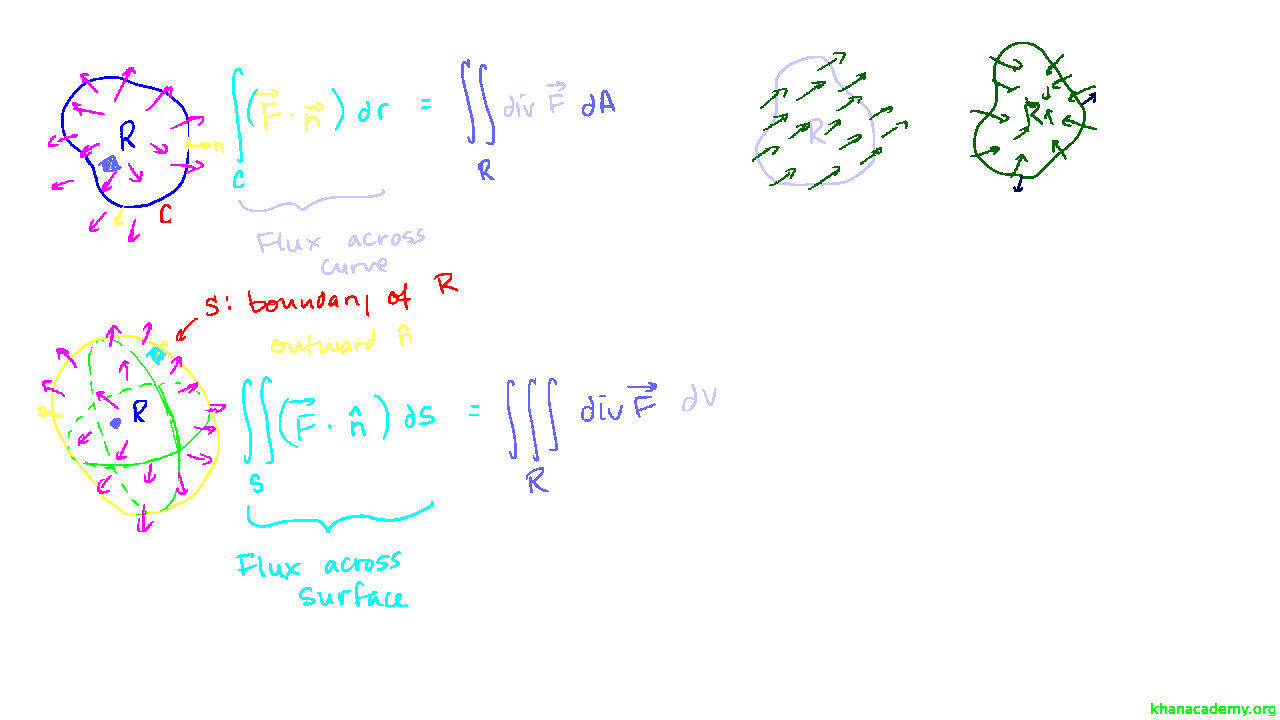 R
n
C
∫ (F⃗ · n⃗) dr = ∬ div F⃗ dA
C R
Flux across
curve
R
R
S: boundary of R
outward n̂
R
∬ (F⃗ · n̂) ds = ∭ div F⃗ dv
S R
Flux across
surface
khanacademy.org